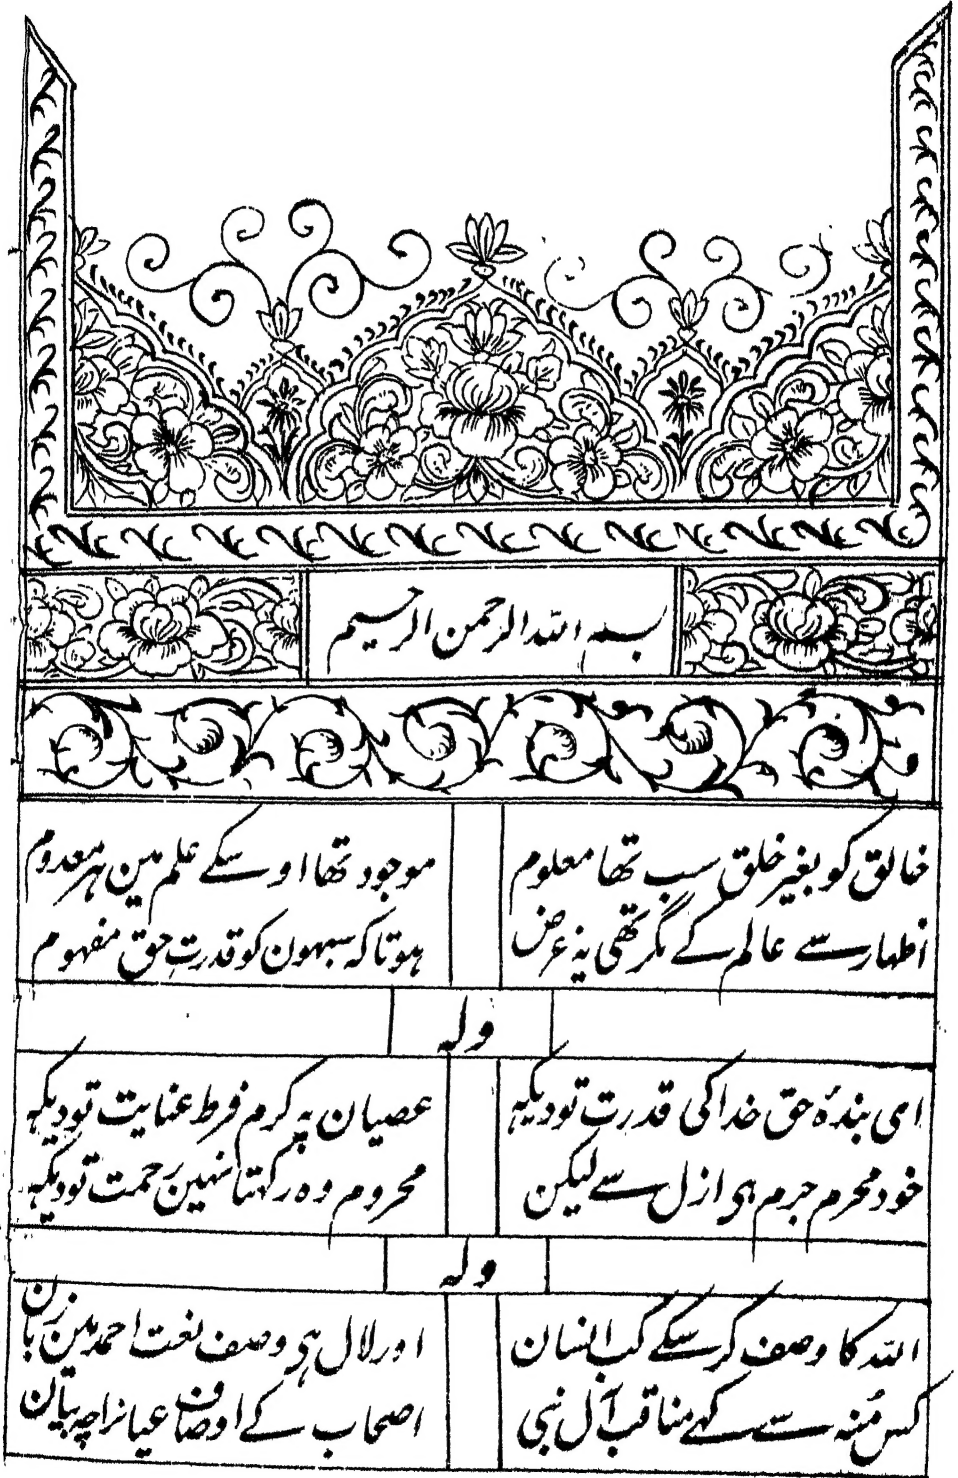 بسم اللہ الرحمن الرحیم
خالق کو بغیر خلق سب تھا معلوم موجود تھا اوسکے علم مین ہر معدوم
اظہار سے عالم کے مگر تھی یہ غرض ہوتا کہ سبہون کو قدرت حق مفہوم
ولہ
ای بندۂ حق خدا کی قدرت تو دیکہہ عصیان پہ کرم فرط عنایت تو دیکہہ
خود محرم جرم ہی ازل سے لیکن محروم وہ رکہتا نہین رحمت تو دیکہہ
ولہ
اللہ کا وصف کر سکے کب انسان اور لال ہی وصف نعت احمد مین زبان
کس مُنہ سے کہے مناقب آل نبی اصحاب کے اوصاف عیانرا چہ بیان